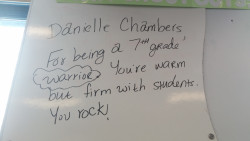 Danielle Chambers
For being a 7th grade
warrior You're warm
but firm with students.
You rock!